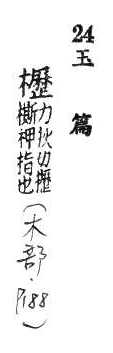 24 玉篇
櫪 力狄切櫪
㯕柙指也(木部·P188)